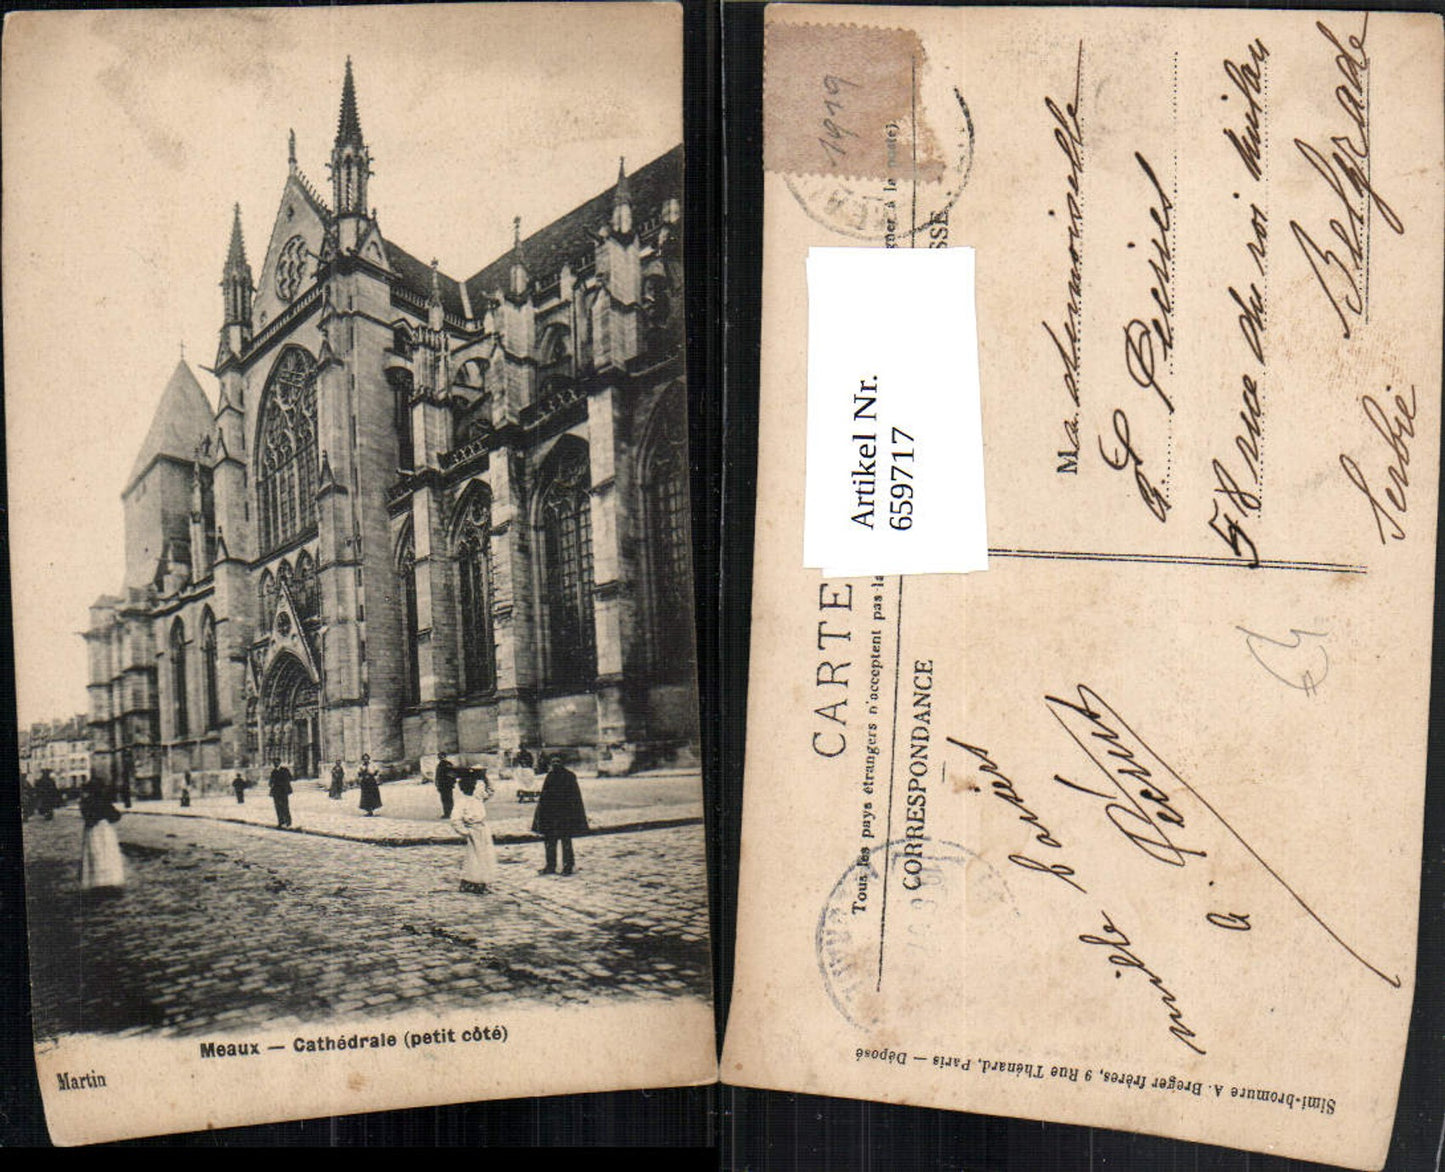 Meaux — Cathédrale (petit côté)
Martin
1919
CARTE
Tous les pays étrangers n'acceptent pas la
CORRESPONDANCE
SSE
Artikel Nr.
6597717
Mademoiselle
58 rue du roi Milan
Belgrade
Serbie
mille baisers
à
Simi-bromure A. Breger frères, 9 Rue Thénard, Paris — Déposé